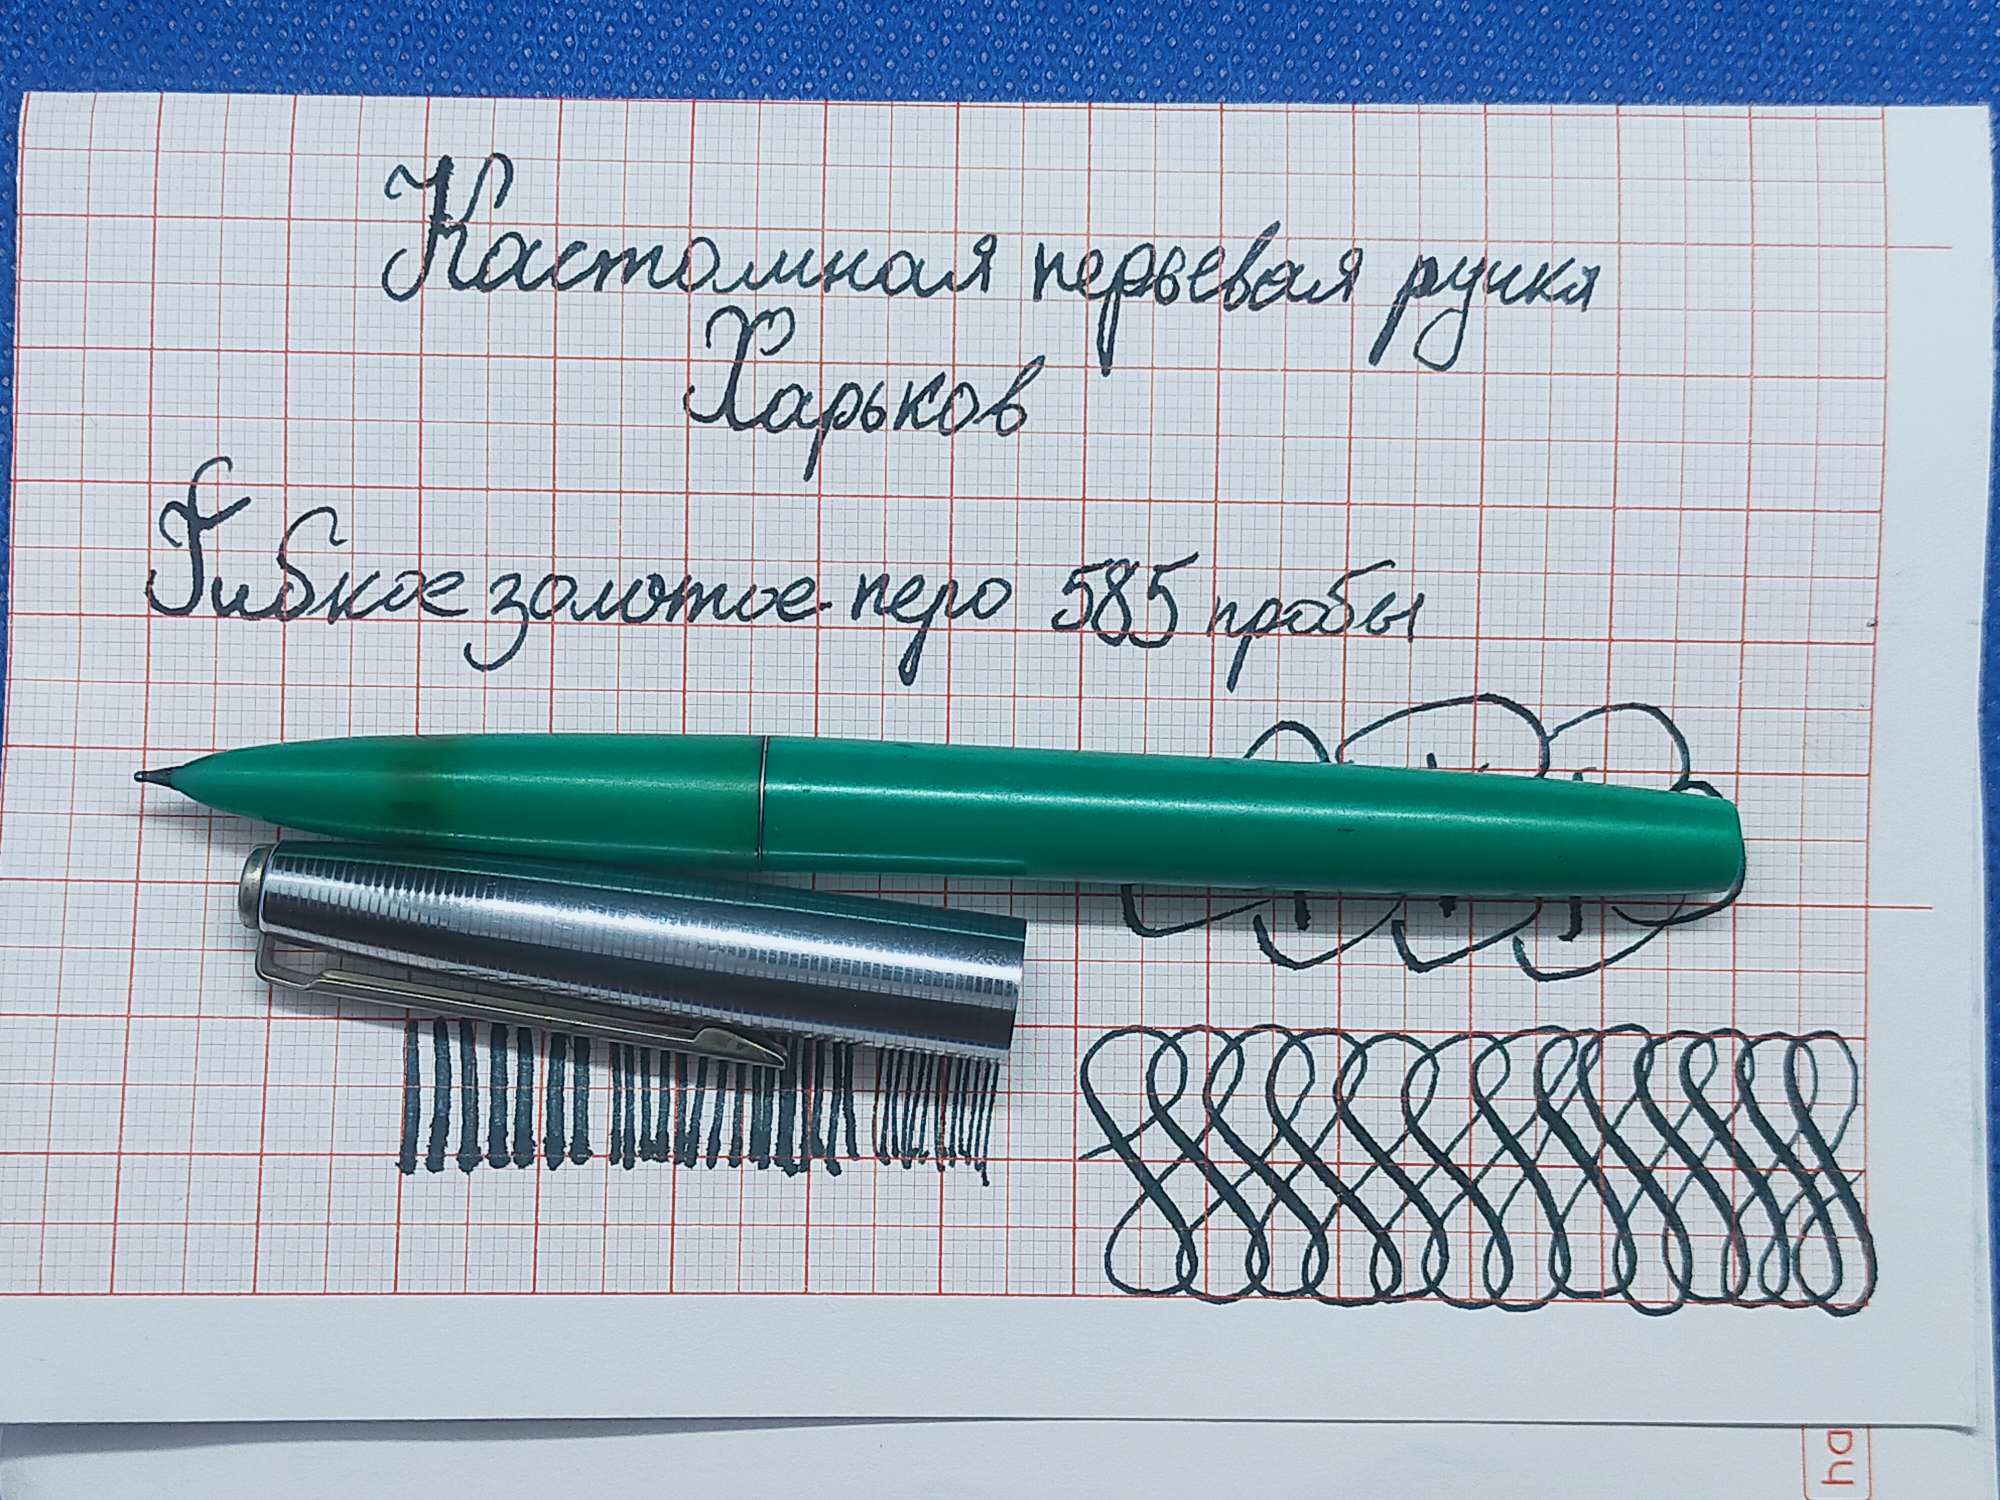 Кастомная перьевая ручка
Харьков
Гибкое золотое перо 585 пробы